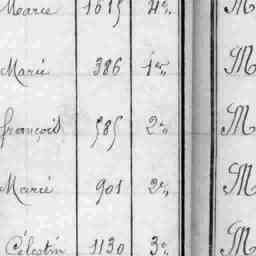 Marie 1615 4e M
Marié 386 1er M
François 585 2e M
Marié 901 2e M
Célestin 1130 3e M